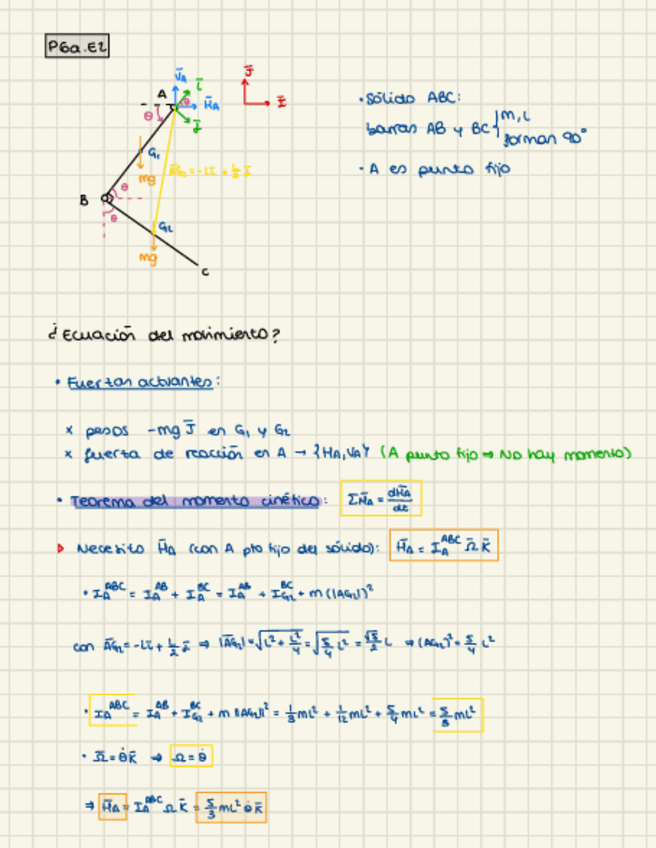 P6a.E2
V̄A
A
ī
H̄A
θ
j̄
J̄
Ī
· Sólido ABC:
barras AB y BC } m, L
forman 90°
· A es punto fijo
G₁
mg
AG₂ = -Lī + L/2 j̄
B
θ
θ
G₂
mg
C
¿Ecuación del movimiento?
· Fuerzas actuantes:
x pesos -mg J̄ en G₁ y G₂
x fuerza de reacción en A → {HA, VA} (A punto fijo ⇒ No hay momento)
· Teorema del momento cinético: ΣM̄A = dH̄A/dt
▷ Necesito H̄A (con A pto fijo del sólido): H̄A = I_A^ABC Ω̄ K̄
· I_A^ABC = I_A^AB + I_A^BC = I_A^AB + I_G₂^BC + m(|AG₂|)²
con ĀG₂ = -Lī + L/2 j̄ ⇒ |ĀG₂| = √(L² + L²/4) = √(5/4 L²) = √5/2 L ⇒ (AG₂)² = 5/4 L²
· I_A^ABC = I_A^AB + I_G₂^BC + m |AG₂|² = 1/3 mL² + 1/12 mL² + 5/4 mL² = 5/3 mL²
· Ω̄ = θ̇ K̄ ⇒ Ω = θ̇
⇒ H̄A = I_A^ABC Ω K̄ = 5/3 mL² θ̇ K̄